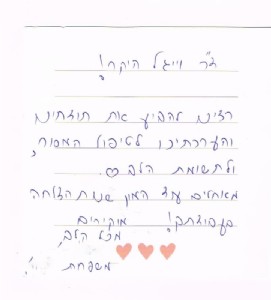 ד"ר וייגל היקר!
רצינו להביע את תודתינו
והערכתינו לטיפול המסור,
ולתשומת הלב.
מאחלים עוד המון שנות הצלחה
בעבודתך! מוקירים
מכל הלב,
משפחת